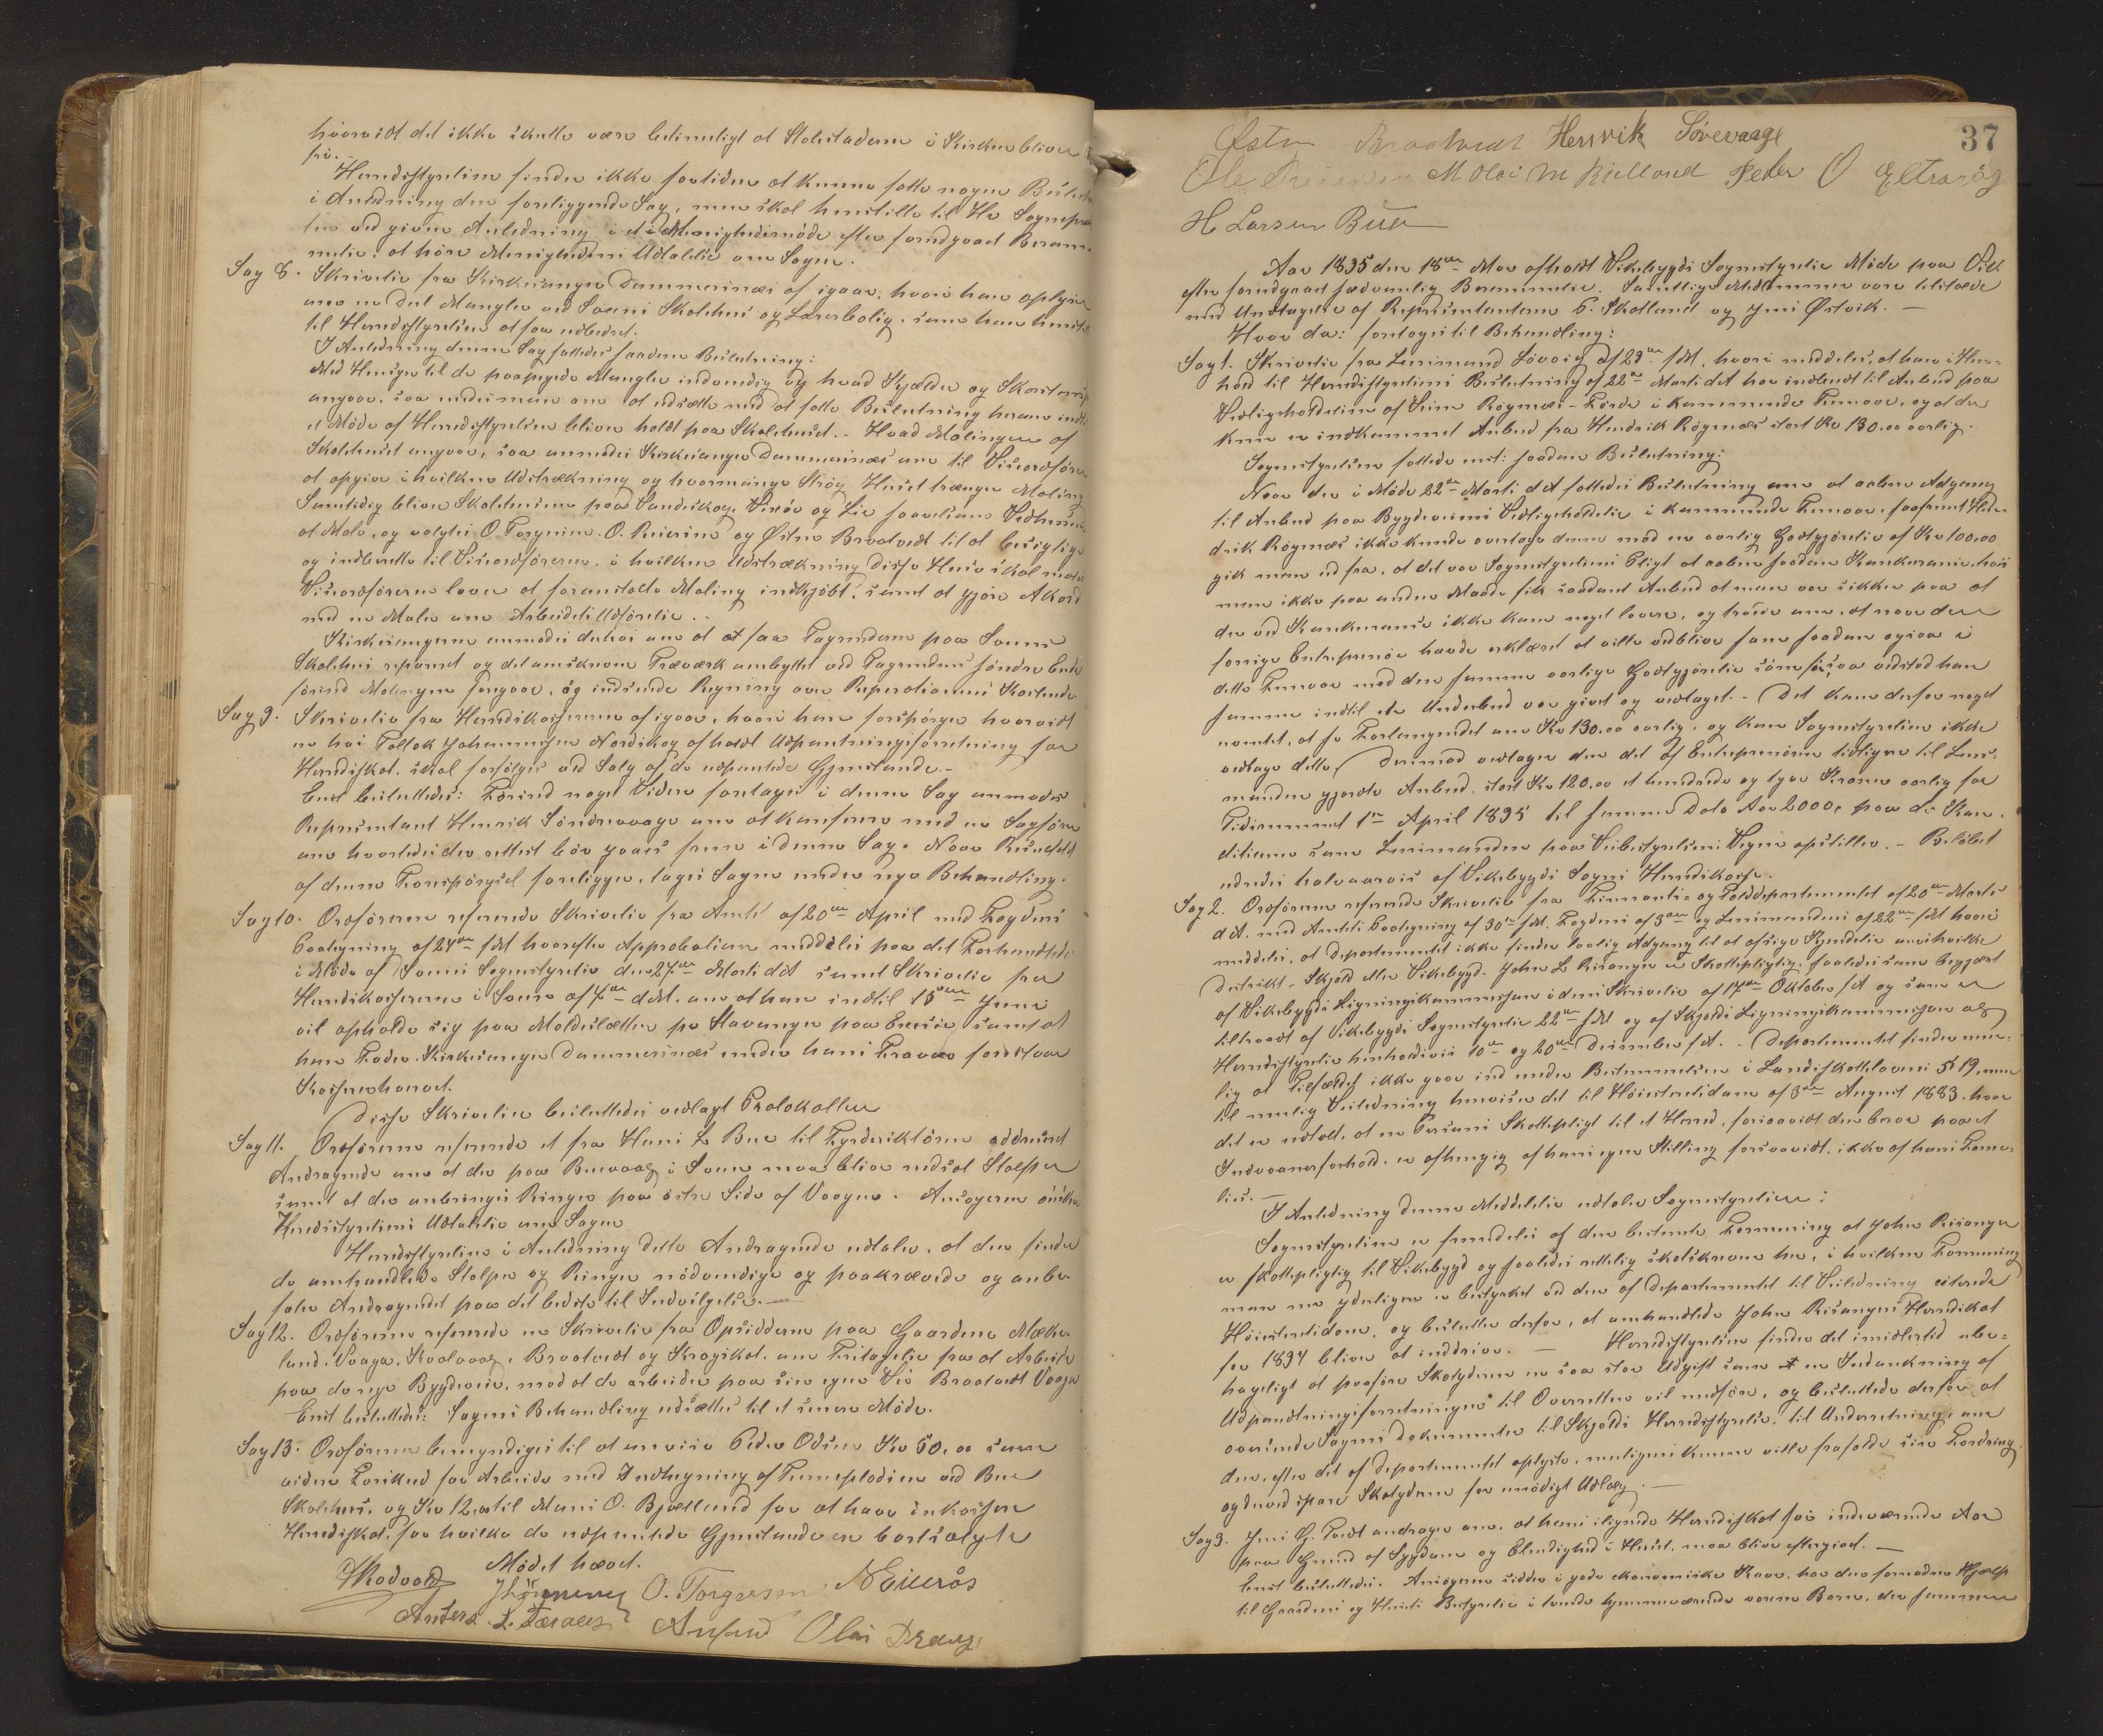 hvorvidt det ikke skulde være betimeligt at Stolestaderne i Kirken bliver
fri. -
Herredsstyrelsen finder ikke foretiden at kunne fatte nogen Beslutn
i Anledning den foreliggende Sag, men skal henstille til Hr Sognepræ
ten ved given Anledning i et Menighedsmøde efter foregaaet Beram-
melse: at høre Menighedens Udtalelse om Sagen.
Sag 8. Skrivelse fra Kirkesanger Dommersnæs af igaar, hvori han oplyser
om en Del Mangler ved Sveens Skolehus og Lærerbolig, som han henstill
til Herredsstyrelsen at faa udbedret.
I Anledning denne Sag fattedes saadan Beslutning:
Med Hensyn til de paapegede Mangler indvendig og hvad Kjælder og Skorstenspi
angaar, saa enedes man om at udsætte med at fatte Beslutning herom indtil
et Møde af Herredsstyrelsen bliver holdt paa Skolehuset. - Hvad Malingen af
Skolehuset angaar, saa anmodes Kirkesanger Dommersnæs om til Viseordføre
at opgive i hvilken Udstrækning og hvormange Strøg Huset trænger Maling
Samtidig bliver Skolehusene paa Sandskog, Vixøe og Lie
at Male, og valgtes O. Torgersen, O. Reiersen og Østen Brootvedt til at besigtige
og indberette til Viseordføreren, i hvilken Udstrækning disse Huse skal males
Viseordføreren lover at foranstalte Maling indkjøbt, samt at gjøre Akord
med en Maler om Arbeidets Udførelse. -
Kirkesangeren anmodes derhos om at faa Tagrenderne paa Sveens
Skolehus repareret og det omskrevne Træværk ombyttet ved Tagrendens søndre Ende
førend Malingen foregaar, og indsende Regning over Reparationens Kostende
Sag 9. Skrivelse fra Herredskassereren af igaar, hvori han forespørger hvorvidt
en hos Tollak Johannessen Nordskog afholdt Udpantningsforretning for
Herredsskat, skal forfølges ved Salg af de udpantede Gjenstande. -
Enst besluttedes: Førend noget Videre foretages i denne Sag anmodes
Repræsentant Henrik Søndrevaage om at konferere med en Sagfører
om hvorledes der rettest bør gaaes frem i denne Sag. Naar Resultat
af denne Forespørgsel foreligger, tages Sagen under nye Behandling.
Sag 10. Ordføreren refererede Skrivelse fra Amtet af 20de April med Fogdens
Paategning af 24de s.M. hvorefter Approbation meddeles paa det Forhandlede
i Møde af Sveens Sognestyrelse den 27de Marts d.A. samt Skrivelse fra
Herredskassereren i Sveen af 7de d.M. om at han indtil 15de Juni
vil opholde sig paa Moldesletten pr Stavanger paa Excersis samt at
han Fader Kirkesanger Dommersnæs under hans Fravær forestaar
Kassererhvervet.
Disse Skrivelser besluttedes vedlagt Protokollen
Sag 11. Ordføreren refererede et fra Hans L Bue til Fyrdirektøren addreseret
Andragende om at der paa Buevaag i Sveen maa blive nedsat Stolper
samt at der anbringes Ringer paa østre Side af Vaagen. Ansøgeren ønsker
Herredsstyrelsens Udtalelse om Sagen
Herredsstyrelsen i Anledning dette Andragende udtaler, at den finder
de omhandlede Stolper og Ringer nødvendige og paakrævede og anbe-
faler Andragendet paa det bedste til Indvilgelse. -
Sag 12. Ordføreren refererede en Skrivelse fra Opsidderne paa Gaardene Mæke-
land, Vaaga, Brootvedt og Krogskot, om Fritagelse fra at Arbeide
paa de nye Bygdeveie, mod at de arbeider paa sin egen Vei Brootvedt Vaaga
Enst besluttedes: Sagens Behandling udsættes til et senere Møde.
Sag 13. Ordføreren bemyndiges til at anvise Peder Ådsen Kr 50,00 som
videre Forskud for Arbeide med Indhegning af Tunneplodsen ved Bue
Skolehus, og Kr 12,00 til Mons O. Bjælland for at have inkasseret
Herredsskat, for hvilke de udpantede Gjenstande er bortsolgte
Mødet hævet.
O. Torgersen N Eilerås
Anders L. Færaas Olai Drange
37
Østen Brootvedt Henrik Sörevaage
Ole Reiersen M Olai M Kjelland Peder O Eltravåg
H Larsen Bue
Aar 1895 den 18de Mai afholdt Vikebygds Sognestyrelse Møde paa Vik
efter foregaaet sædvanlig Berammelse. Samtlige Medlemmer vare tilstede
med Undtagelse af Repræsentanterne P. Skotland og Jens Østvik. -
Hvor da: foretoges til Behandling:
Sag 1. Skrivelse fra Lensmand Løvvig af 29de f.M., hvori meddeles, at han i Hen-
hold til Herredsstyrelsens Beslutning af 22de Marts d.A har indbudt til Anbud paa
Vedligeholdelsen af Veien Røgenæs - Førde i kommende Termov, og at der
kun er indkommet Anbud fra Hendrik Røgenæs stort Kr 130,00 aarlig.
Sognestyrelsen fattede enst: saadan Beslutning:
Naar der i Møde 22de Marts d.A fattedes Beslutning om at aabne Adgang
til Anbud paa Bygdeveiens Vedligeholdelse i kommende Termov, saafremt Hen-
drik Røgenæs ikke kunde overtage denne mod en aarlig Godtgjørelse af Kr 100,00
gik man ud fra, at det var Sognestyrelsens Pligt at aabne saadan Konkurance, hvis
man ikke paa anden Maade fik saadant Anbud at man var sikker paa at
der ved Konkurance ikke kan noget lavere, og troede om, at naar den
forrige Entreprenør havde erklæret at ville vedblive som saadan ogsaa i
dette Termov mod den samme aarlige Godtgjørelse som før, saa vedstod han
samme indtil et Underbud var givet og vedtaget. - Det kom derfor noget
uventet, at se Forlangendet om Kr 130,00 aarlig, og kan Sognestyrelsen ikke
vedtage dette, derimod vedtages den det af Entreprenøren tidligere til Lens-
manden gjorte Anbud, stort Kr 120,00 et hundrede og tyve Kroner aarlig for
Tidsrummet 1ste April 1895 til samme Dato Aar 2000, paa de Kon-
ditioner som Lensmanden paa Veibestyrelsens Vegne opstiller. - Beløbet
udredes halvaarvis af Vikebygds Sogns Herredskasse.
Sag 2. Ordføreren refererede Skrivelse fra Finants- og Tolddepartementet af 20de Marts
d.A. med Amtets Paategning af 30te s.M. Fogdens af 3die og Lensmandens af 22de f.M hvori
meddeles, at Departementet ikke finder lovlig Adgang til at afsige Kjendelse om i hvilke
Distrikt - Skjold eller Vikebygd - John L Risanger er Skattepligtig, saaledes som begjært
af Vikebygds Ligningskommission i dens Skrivelse af 17de Oktober f.A og som er
tiltraadt af Vikebygds Sognestyrelse 22de s.M og af Skjolds Ligningskommission og
Herredsstyrelse henholdsvis 10de og 20de Desember f.A. - Departementet finder nem-
lig at Tilfældet ikke gaar ind under Bestemmelsen i Landsskattelovens § 19, men
til mulig Veiledning henvises det til Høiesteretsdom af 3die August 1883, hvor
det er udtalt, at en Persons Skattepligt til et Herred, forsaavidt den beror paa et
Indvaanerforhold, er afhængig af hans egen Stilling forsaavidt, ikke af hans Fami-
lies. -
I Anledning denne Meddelelse udtaler Sognestyrelsen:
Sognestyrelsen er fremdeles af den bestemte Formening at John Risanger
er skattepligtig til Vikebygd og saaledes rettelig skatskreven her, i hvilken Formening
man nu yderligere er bestyrket ved den af Departementet til Veiledning citerede
Høiesteretsdom, og beslutter derfor, at omhandlede John Risangers Herredsskat
for 1894 bliver at inddrive. - Herredsstyrelsen finder det imidlertid ube-
hageligt at paaføre Skatyderne en saa stor Udgift som en Indankning af
Udpantningsforretningen til Overretten vil medføre, og besluttede derfor at
oversende Sagens Dokumenter til Skjolds Herredsstyrelse, til Underretning, om
den, efter det af Departementet oplyste, muligens kunne ville frafalde sin Fordring
og derved spare Skatyderne for unødigt Udlæg. -
Sag 3. Jens G. Tveit andrager om, at hans ilignede Herredsskat for indeværende Aar
paa Grund af Sygdom og Elendighed i Huset, maa blive eftergivet. -
Enst besluttedes. Ansøgeren sidder i gode ekonomiske Kaar, har den fornødne Hjælp
til Gaardens og Husets Bestyrelse i tvende hjemmeværende voxne Børn, der sammen